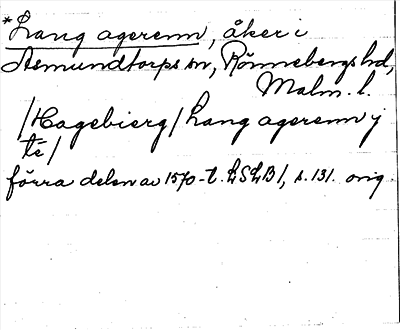 *Lang agerenn, åker i
Asmundtorps sn, Rönnebergs hd,
Malm. l.
/Hagebierg/ Lang agerenn j
te/
förra delen av 1570-t. LSLB1, s. 131. orig.